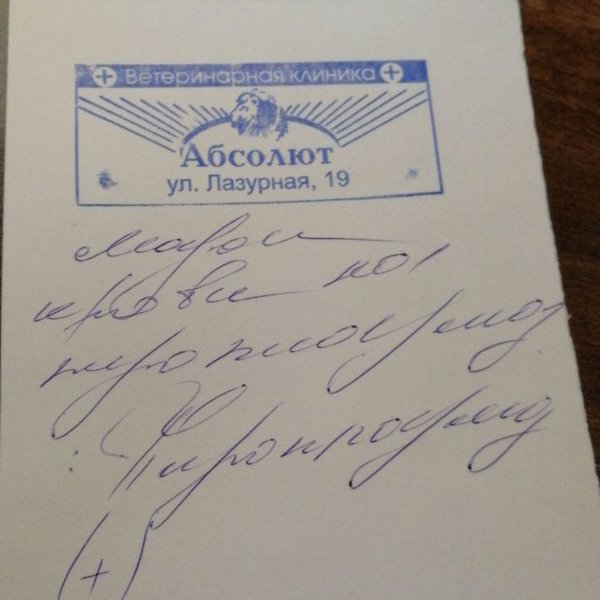 Ветеринарная клиника
Абсолют
ул. Лазурная, 19
мазок
крови на
пироплазмоз
: Пироплазмоз
(+)